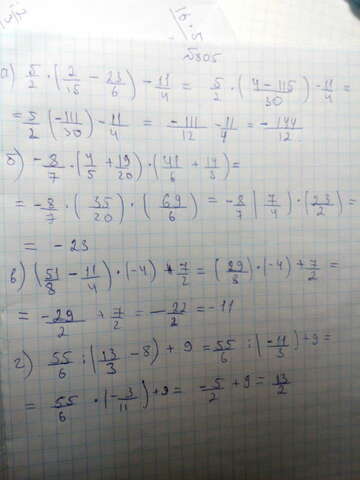 №805
а) 5/2 · (2/15 - 23/6) - 11/4 = 5/2 · (4-115/30) - 11/4 =
= 5/2 (-111/30) - 11/4 = -111/12 - 11/4 = -144/12
б) -8/7 · (4/5 + 19/20) · (41/6 + 14/3) =
= -8/7 · (35/20) · (69/6) = -8/7 (7/4) · (23/2) =
= -23
в) (51/8 - 11/4) · (-4) + 7/2 = (29/8) · (-4) + 7/2 =
= -29/2 + 7/2 = -22/2 = -11
г) 55/6 : (13/3 - 8) + 9 = 55/6 : (-11/3) + 9 =
= 55/6 · (-3/11) + 9 = -5/2 + 9 = 13/2